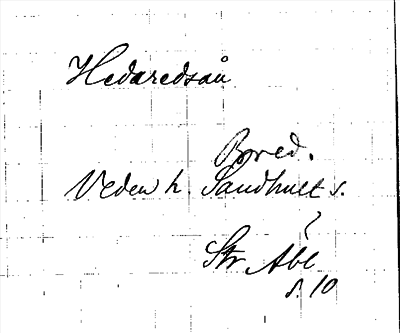 Hedaredsån
Bred.
Veden h. Sandhult s.
Str Åbl
s. 10